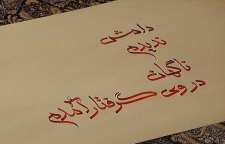 دامش
ندیدم
ناگهان
در وی گرفتار آمدم